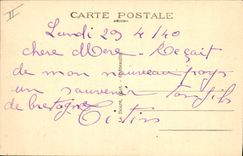 II
CARTE POSTALE
Lundi 29 4/40
chere Mere. Reçoit
de mon nouveau pays
un souvenir ton fils
de bretagne Titin